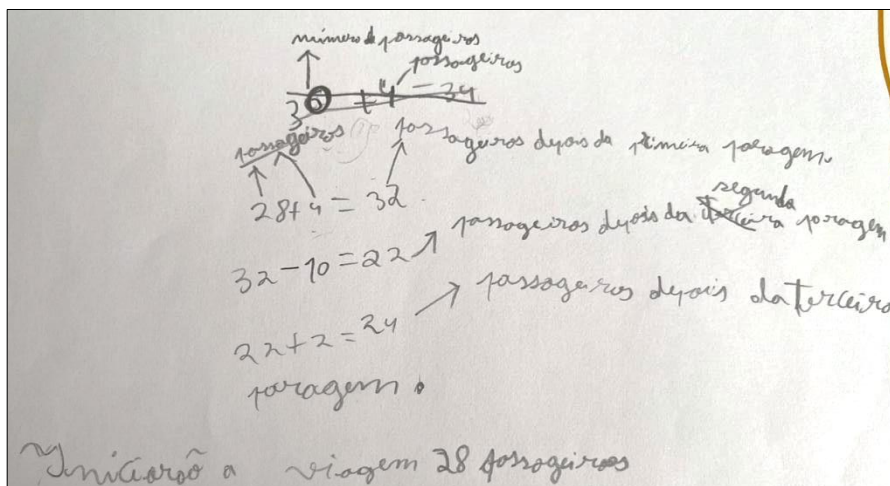 número de passageiros
passageiros
30 + 4 = 34
passageiros
passageiros depois da primeira paragem.
28 + 4 = 32
segunda
32 - 10 = 22 passageiros depois da terceira paragem
22 + 2 = 24 passageiros depois da terceira
paragem.
Iniciarõ a viagem 28 passageiros